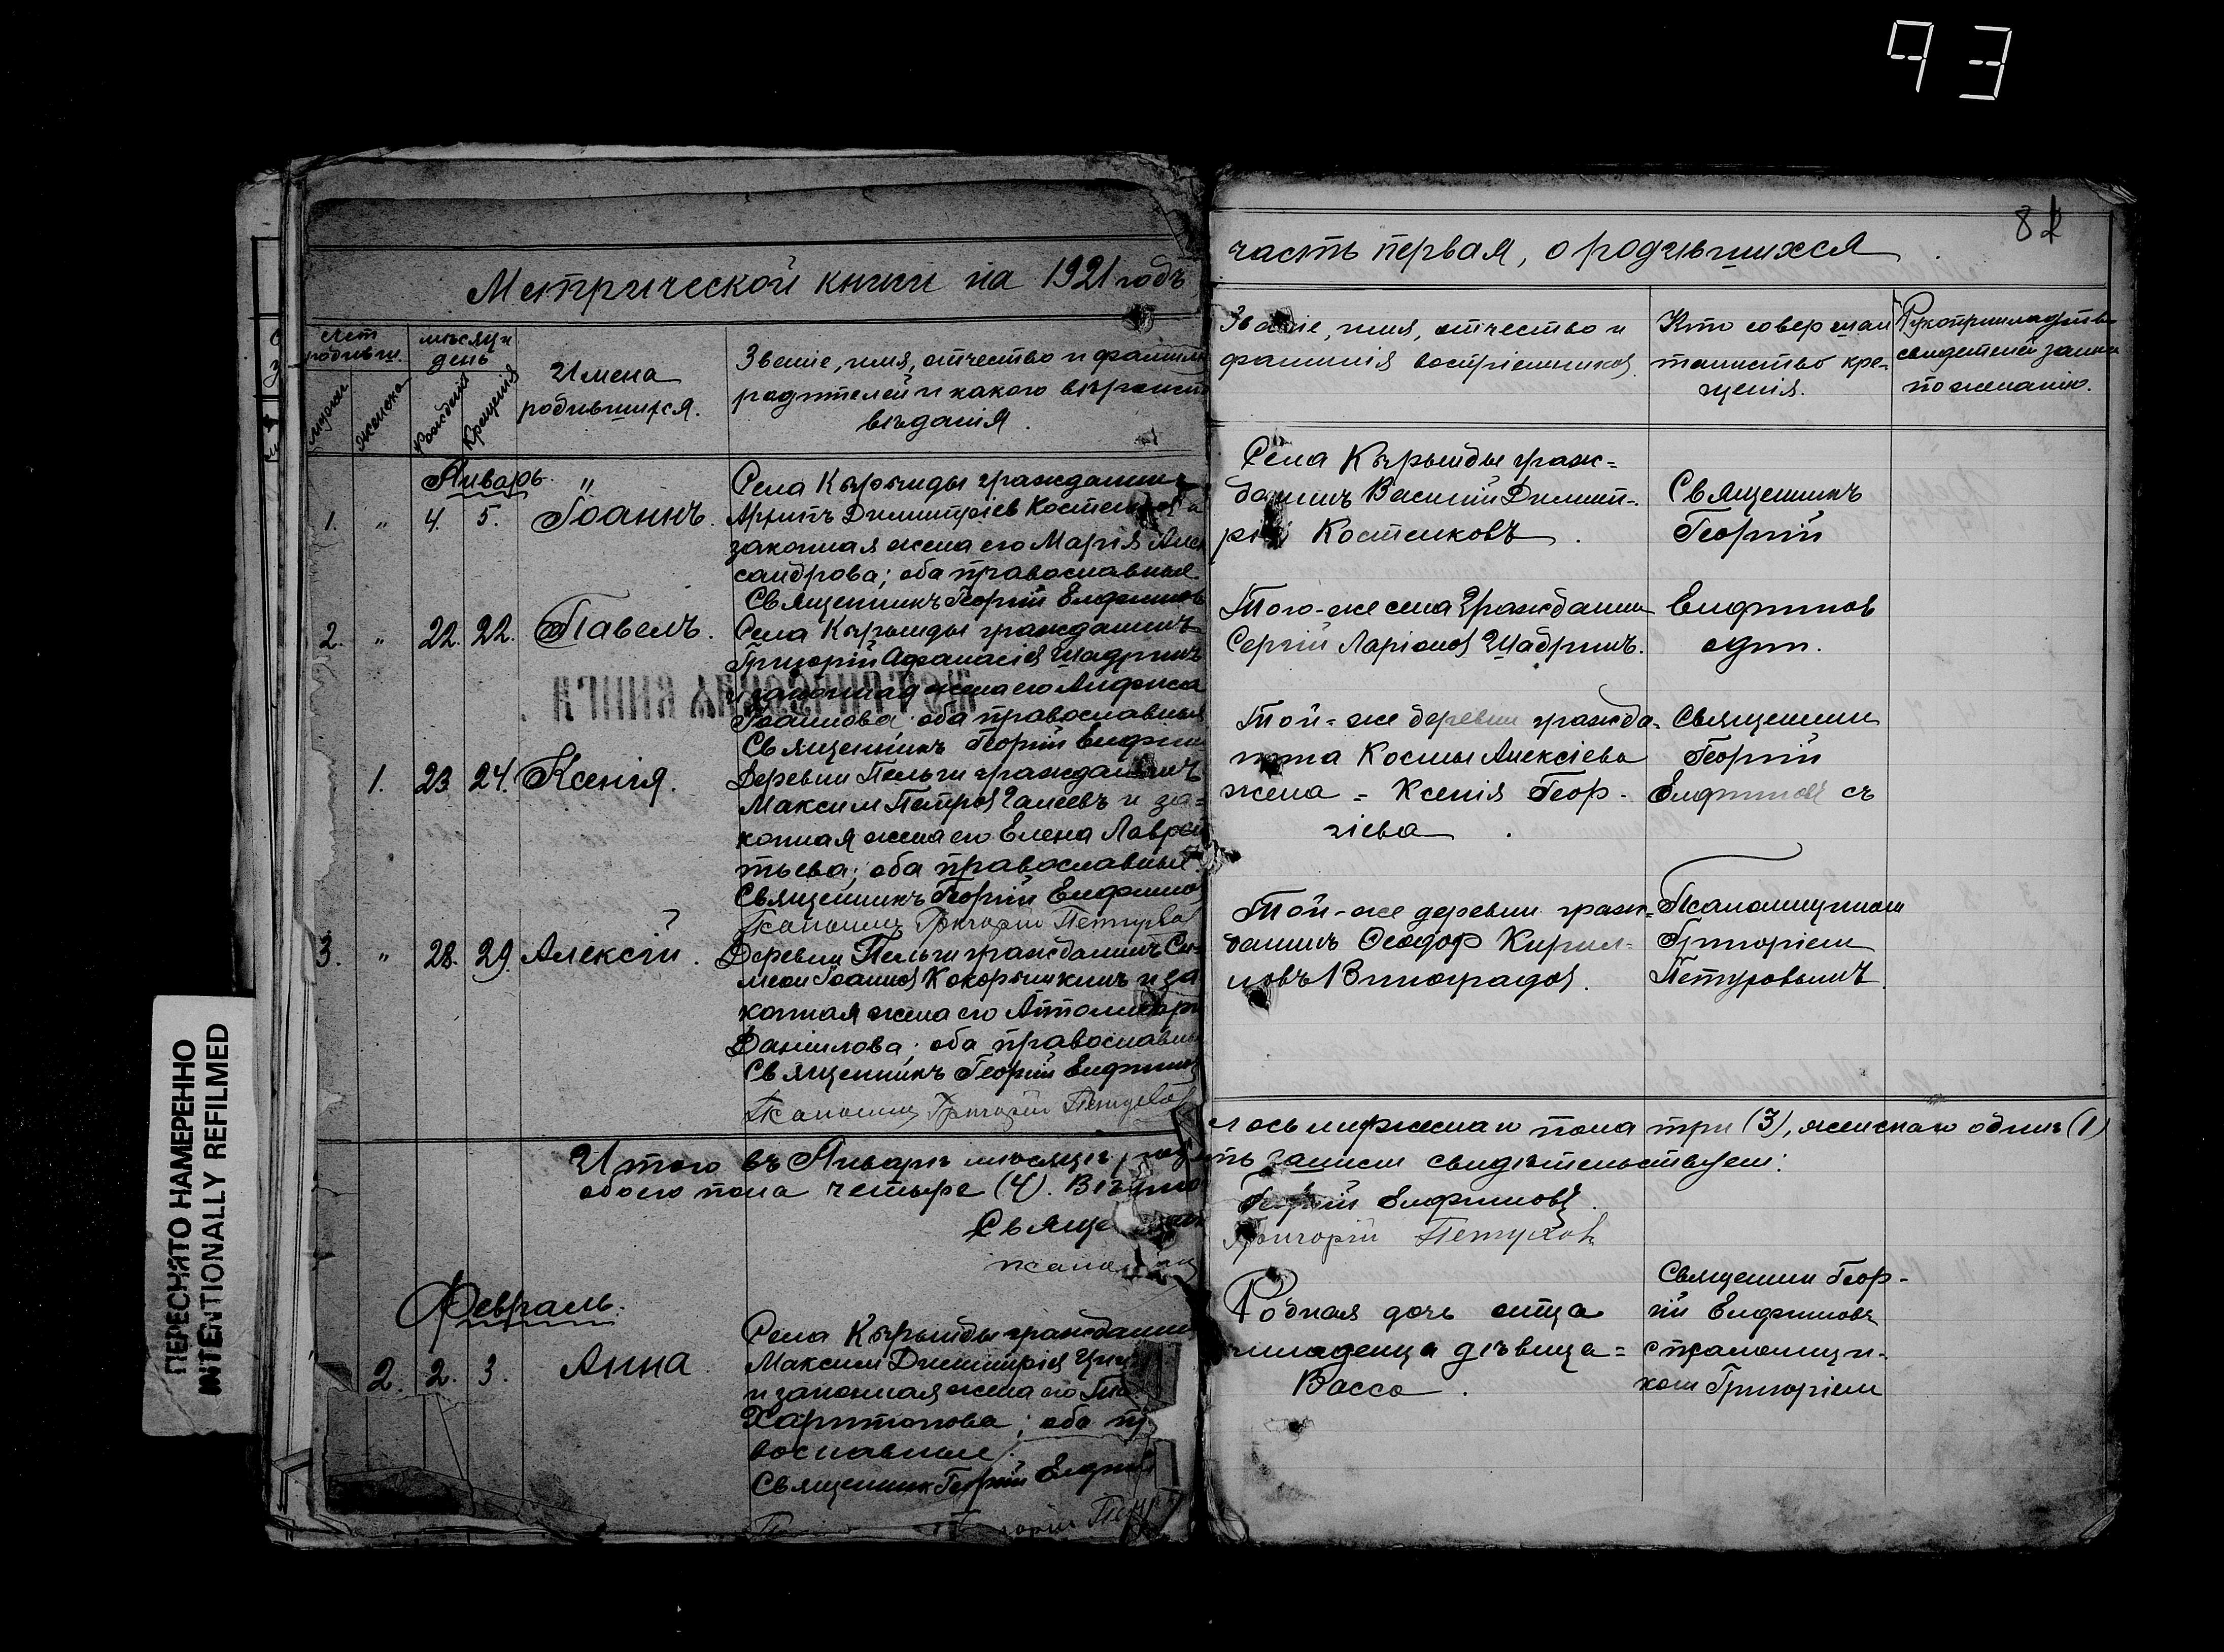 93
82
Метрической книги на 1921 годъ
часть первая, о родившихся
счет родивш.
мѣсяц и день
мужск.
женска
Рождения
Крещенія
Имена
родившихся.
Званіе, имя, отчество и фамилия
родителей и какого вѣроиспо
вѣданія.
Званіе, имя, отчество и
фамилія воспріемников.
Кто совершал
таинство кре-
щенія.
Рукоприкладство
свидетелей записи
по желанію.
Январь. "
1. " 4. 5. Іоаннъ.
Села Кырынды гражданинъ
Архипъ Димитріев Костенков и
законная жена его Марія Алек
сандрова; оба православные.
Священникъ Георгій Елфимов
Села Кырынды граж=
данинъ Василій Димит-
рі Костенковъ.
Священникъ
Георгій
2. " 22. 22. Павелъ.
Села Кырынды гражданинъ
Григорій Афанасіев Шадринъ
законная жена его Анфиса
Іоаннова оба православные
Священникъ Георгій Елфим
Того-же села Гражданин
Сергій Ларіонов Шадринъ.
Елфимов
один.
МЕТРИЧЕСКАЯ КНИГА
1. 23 24. Ксенія.
Деревни Пельги гражданинъ
Максим Петров Галеевъ и за=
конная жена его Елена Лаврен
тьева; оба православные.
Священникъ Георгій Елфимов
Псаломщ Григорій Петухов
Той-же деревни гражда-
нина Космы Алексіева
жена = Ксенія Геор-
гіева.
Священник
Георгій
Елфимов съ
3. " 28. 29. Алексій.
Деревни Пельги гражданинъ Си-
меон Іоаннов Кокорышкинъ и за
конная жена его Апполинарі
Даніилова; оба православны
Священникъ Георгій Елфимов
Псаломщ Григорій Петухов
Той-же деревни граж-
данинъ Феодор Кирил-
ловъ Виноградов.
Псаломщиком
Григоріем
Петуховымъ.
Итого въ Январѣ мѣсяцѣ, родилось мужескаго пола три (3), женскаго одинъ (1)
обоего пола четыре (4). Вѣрность записи свидѣтельствуем:
Священник Георгій Елфимовъ.
псаломщ Григорій Петухов
Февраль.
2. 2. 3. Анна
Села Кырынды гражданин
Максим Димитріев
и законная жена его
Харитонова; оба пр
вославные.
Священник Георгій Елфим
Родная дочь отца
младенца дѣвица =
Васса.
Священник Геор-
гій Елфимовъ
с псаломщи-
ком Григоріем
ПЕРЕСНЯТО НАМЕРЕННО
INTENTIONALLY REFILMED